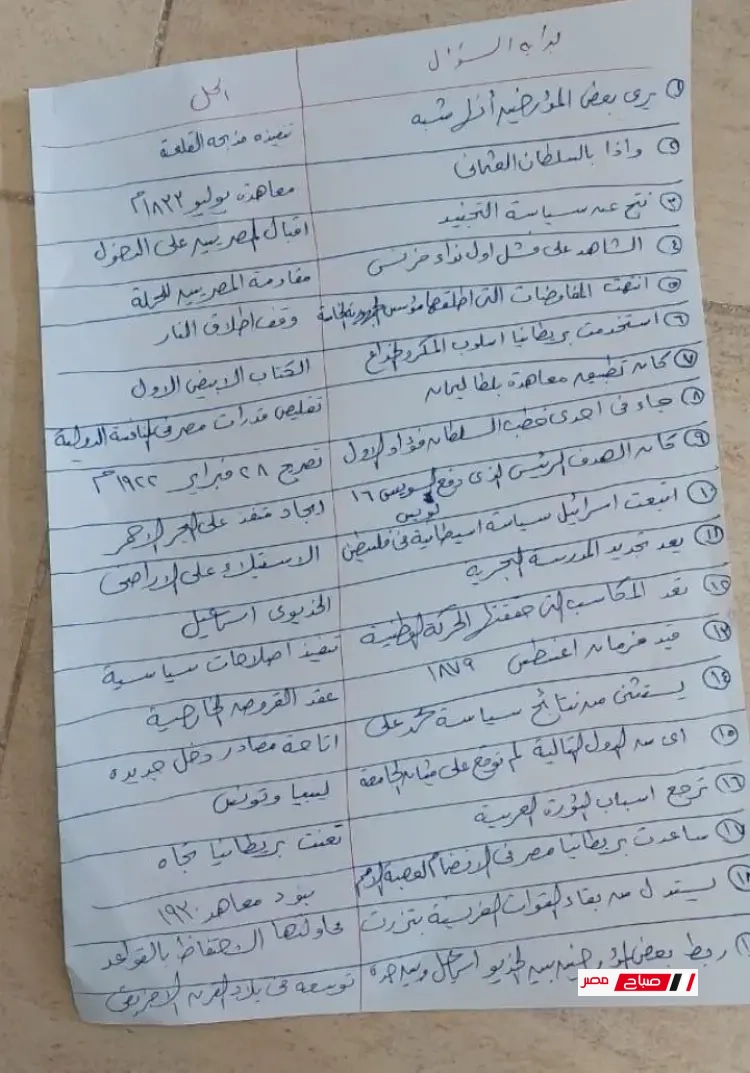 بداية السؤال الحل
① يرى بعض المؤرخين أنها شبه تنفيذه مذبحه القلعة
② واذا بالسلطان العثمانى معاهدة يوليو ١٨٣٣م
③ نتج عن سياسة التجنيد اقبال المصريين على الدخول
④ الشاهد على فشل اول نداء فرنسى مقاومة المصريين للحملة
⑤ انتهت المفاوضات التى اطلقها مؤسس الجمهورية الخامسة وقف اطلاق النار
⑥ استخدمت بريطانيا اسلوب المكر والخداع الكتاب الابيض الاول
⑦ كان تطبيق معاهدة بلطا ليمان تقليص قدرات مصر فى المنافسة الدولية
⑧ جاء فى احدى خطب السلطان فؤاد الاول تصريح ٢٨ فبراير ١٩٢٢م
⑨ كان الهدف الرئيسى الذى دفع لويس ١٦ ايجاد منفذ على البحر الاحمر
لويس
⑩ اتبعت اسرائيل سياسة استيطانية فى فلسطين الاستيلاء على الاراضى
⑪ يعد تجديد المدرسة البحرية الخديوى اسماعيل
⑫ تعد المكاسب التى حققتها الحركة الوطنية تنفيذ اصلاحات سياسية
⑬ قيد فرمان اغسطس ١٨٧٩ عقد القروض الخارجية
⑭ يستثنى من نتائج سياسة محمد على اتاحة مصادر دخل جديده
⑮ اى من الدول التالية لم توقع على ميثاق الجامعة ليبيا وتونس
⑯ ترجع اسباب الثورة العربية تعنت بريطانيا تجاه
⑰ ساعدت بريطانيا مصر فى الانضمام لعصبة الامم بنود معاهد ١٩٣٠
١٨ يستدل من بقاء القوات الفرنسية بتنزرت محاولتها الاحتفاظ بالقواعد
ربط بعض المؤرخين بين الخديو اسماعيل وبين توسعه فى بلاد القرن الافريقى
صباح مصر